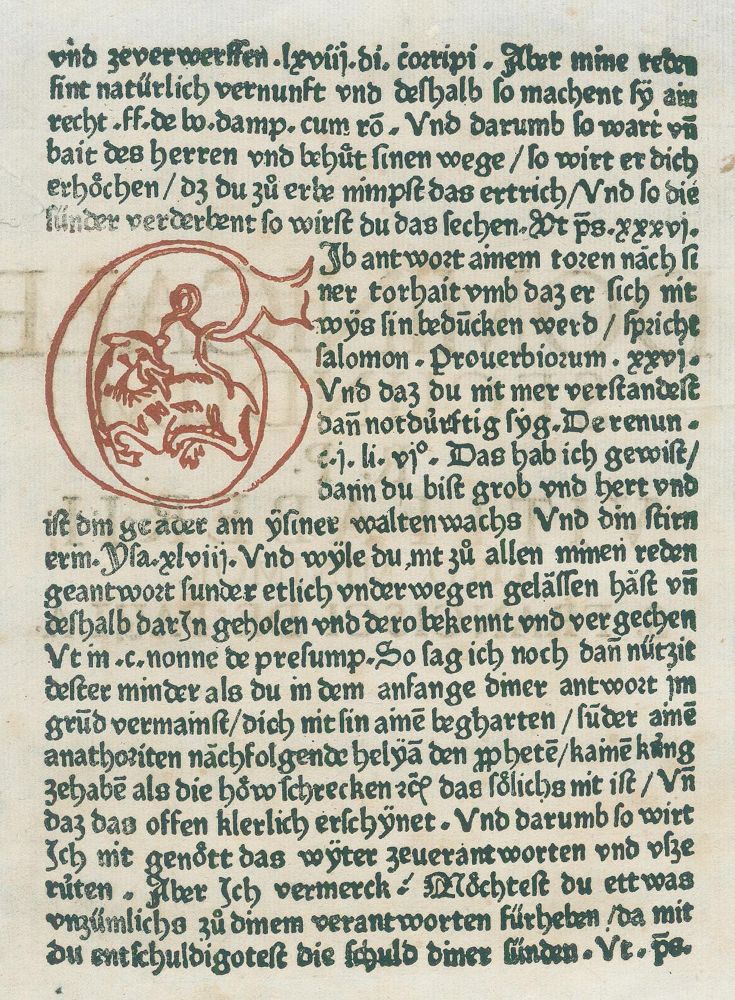 vn̄d zeverwerffen .lxviij.di. c̄orripi . Aber mine reden
sint natürlich vernunft vnd deshalb so machent sÿ ain
recht .ff.de bo.damp. cum rō . Vnd darumb so wart vn̄
bait des herren vnd behuͤt sinen wege / so wirt er dich
erhoͤchen / dz du zuͦ erbe nimpst das ertrich/Vnd so die
sünder verderbent so wirst du das sechen. Vt p̄s. xxxvj.
GJb antwort aimem toren nāch si
ner torhait vmb daz er sich nit
wÿs sin bedūcken werd / spricht
salomon . Prouerbiorum . xxvj.
Vnd daz du nit mer verstandest
dan̄ notdürftig sÿg. De renun .
c.j. li. vjº. Das hab ich gewist/
dann du bist grob vnd hert vnd
ist din geäder ain ÿsiner waltenwachs Vnd din stirn
erin. Ysa.xlviij. Vnd wÿle du nit zuͦ allen minen reden
geantwort sunder etlich vnderwegen gelässen häst vn̄
deshalb darJn geholen vnd dero bekennt vnd vergechen
Vt in .c. nonne de presump. So sag ich noch dan̄ nützit
dester minder als du in dem anfange diner antwort jm
grūd vermainst/dich nit sin ainē begharten / sūder ainē
anathoriten nāchfolgende helÿā den ꝓphetē/kainē kúng
zehabē als die höwschrecken ꝛcͣ das sölichs nit ist / Vn̄
daz das offen klerlich erschÿnet . Vnd darumb so wirt
Jch nit genött das wÿter zeuerantworten vnd vsze
rüten . Aber Jch vermerck : Möchtest du ettwas
vnzümlichs zuͦ dinem verantworten fürheben /da mit
du entschuldigotest die schuld diner sünden . Vt . p̄s.